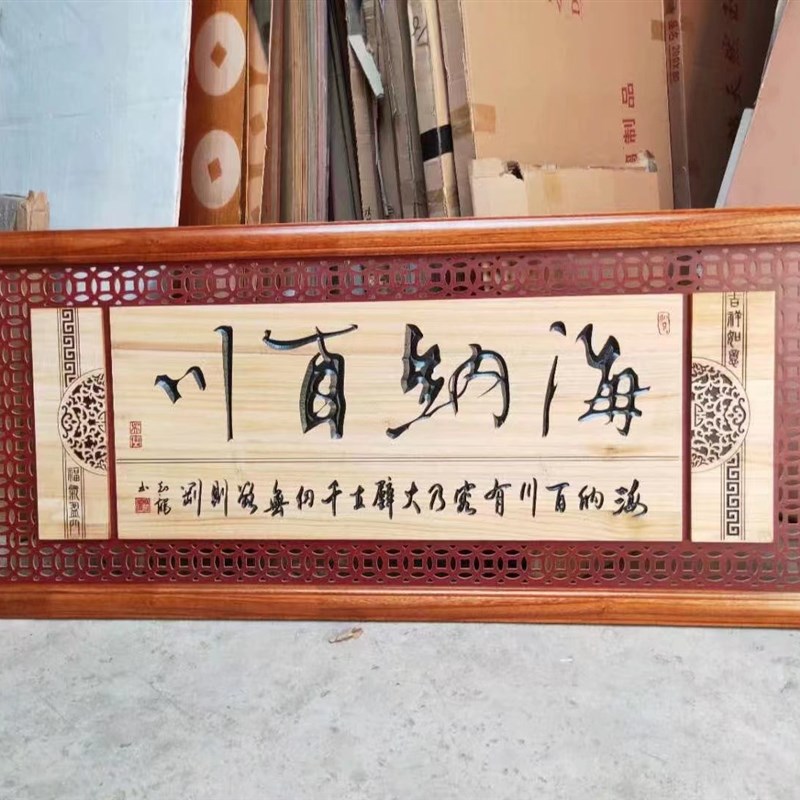 海纳百川
海纳百川有容乃大壁立千仞無欲則剛
吉祥如意
福氣盈門
制品